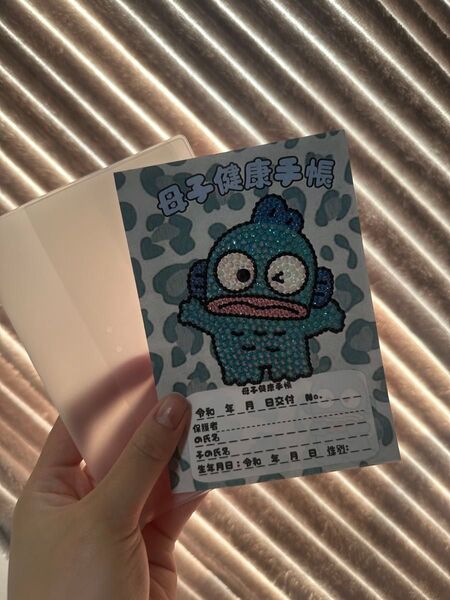 母子健康手帳
母子健康手帳
令和 年 月 日交付 No.
保護者
の氏名
子の氏名
生年月日:令和 年 月 日 性別: